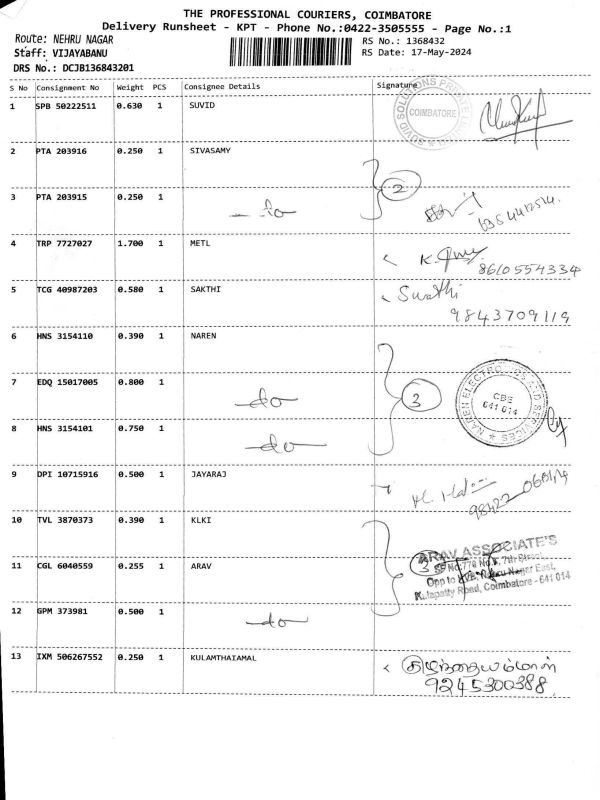 THE PROFESSIONAL COURIERS, COIMBATORE
Delivery Runsheet - KPT - Phone No.:0422-3505555 - Page No.:1
Route: NEHRU NAGAR RS No.: 1368432
Staff: VIJAYABANU RS Date: 17-May-2024
DRS No.: DCJB136843201
S No Consignment No Weight PCS Consignee Details Signature
1 SPB 50222511 0.630 1 SUVID
COIMBATORE
2 PTA 203916 0.250 1 SIVASAMY
2
3 PTA 203915 0.250 1 -do-
4 TRP 7727027 1.700 1 METL
8610554334
5 TCG 40987203 0.580 1 SAKTHI Swathi
9843709119
6 HNS 3154110 0.390 1 NAREN
NAREN ELECTRONICS AND SERVICES
CBE
641 014
7 EDQ 15017005 0.800 1 -do- 3
8 HNS 3154101 0.750 1 -do-
9 DPI 10715916 0.500 1 JAYARAJ
10 TVL 3870373 0.390 1 KLKI
ARAV ASSOCIATE'S
11 CGL 6040559 0.255 1 ARAV 3
7th Street,
Opp to Nehru Nagar East,
Kalapatty Road, Coimbatore - 641 014
12 GPM 373981 0.500 1 -do-
13 IXM 506267552 0.250 1 KULAMTHAIAMAL
9245300388